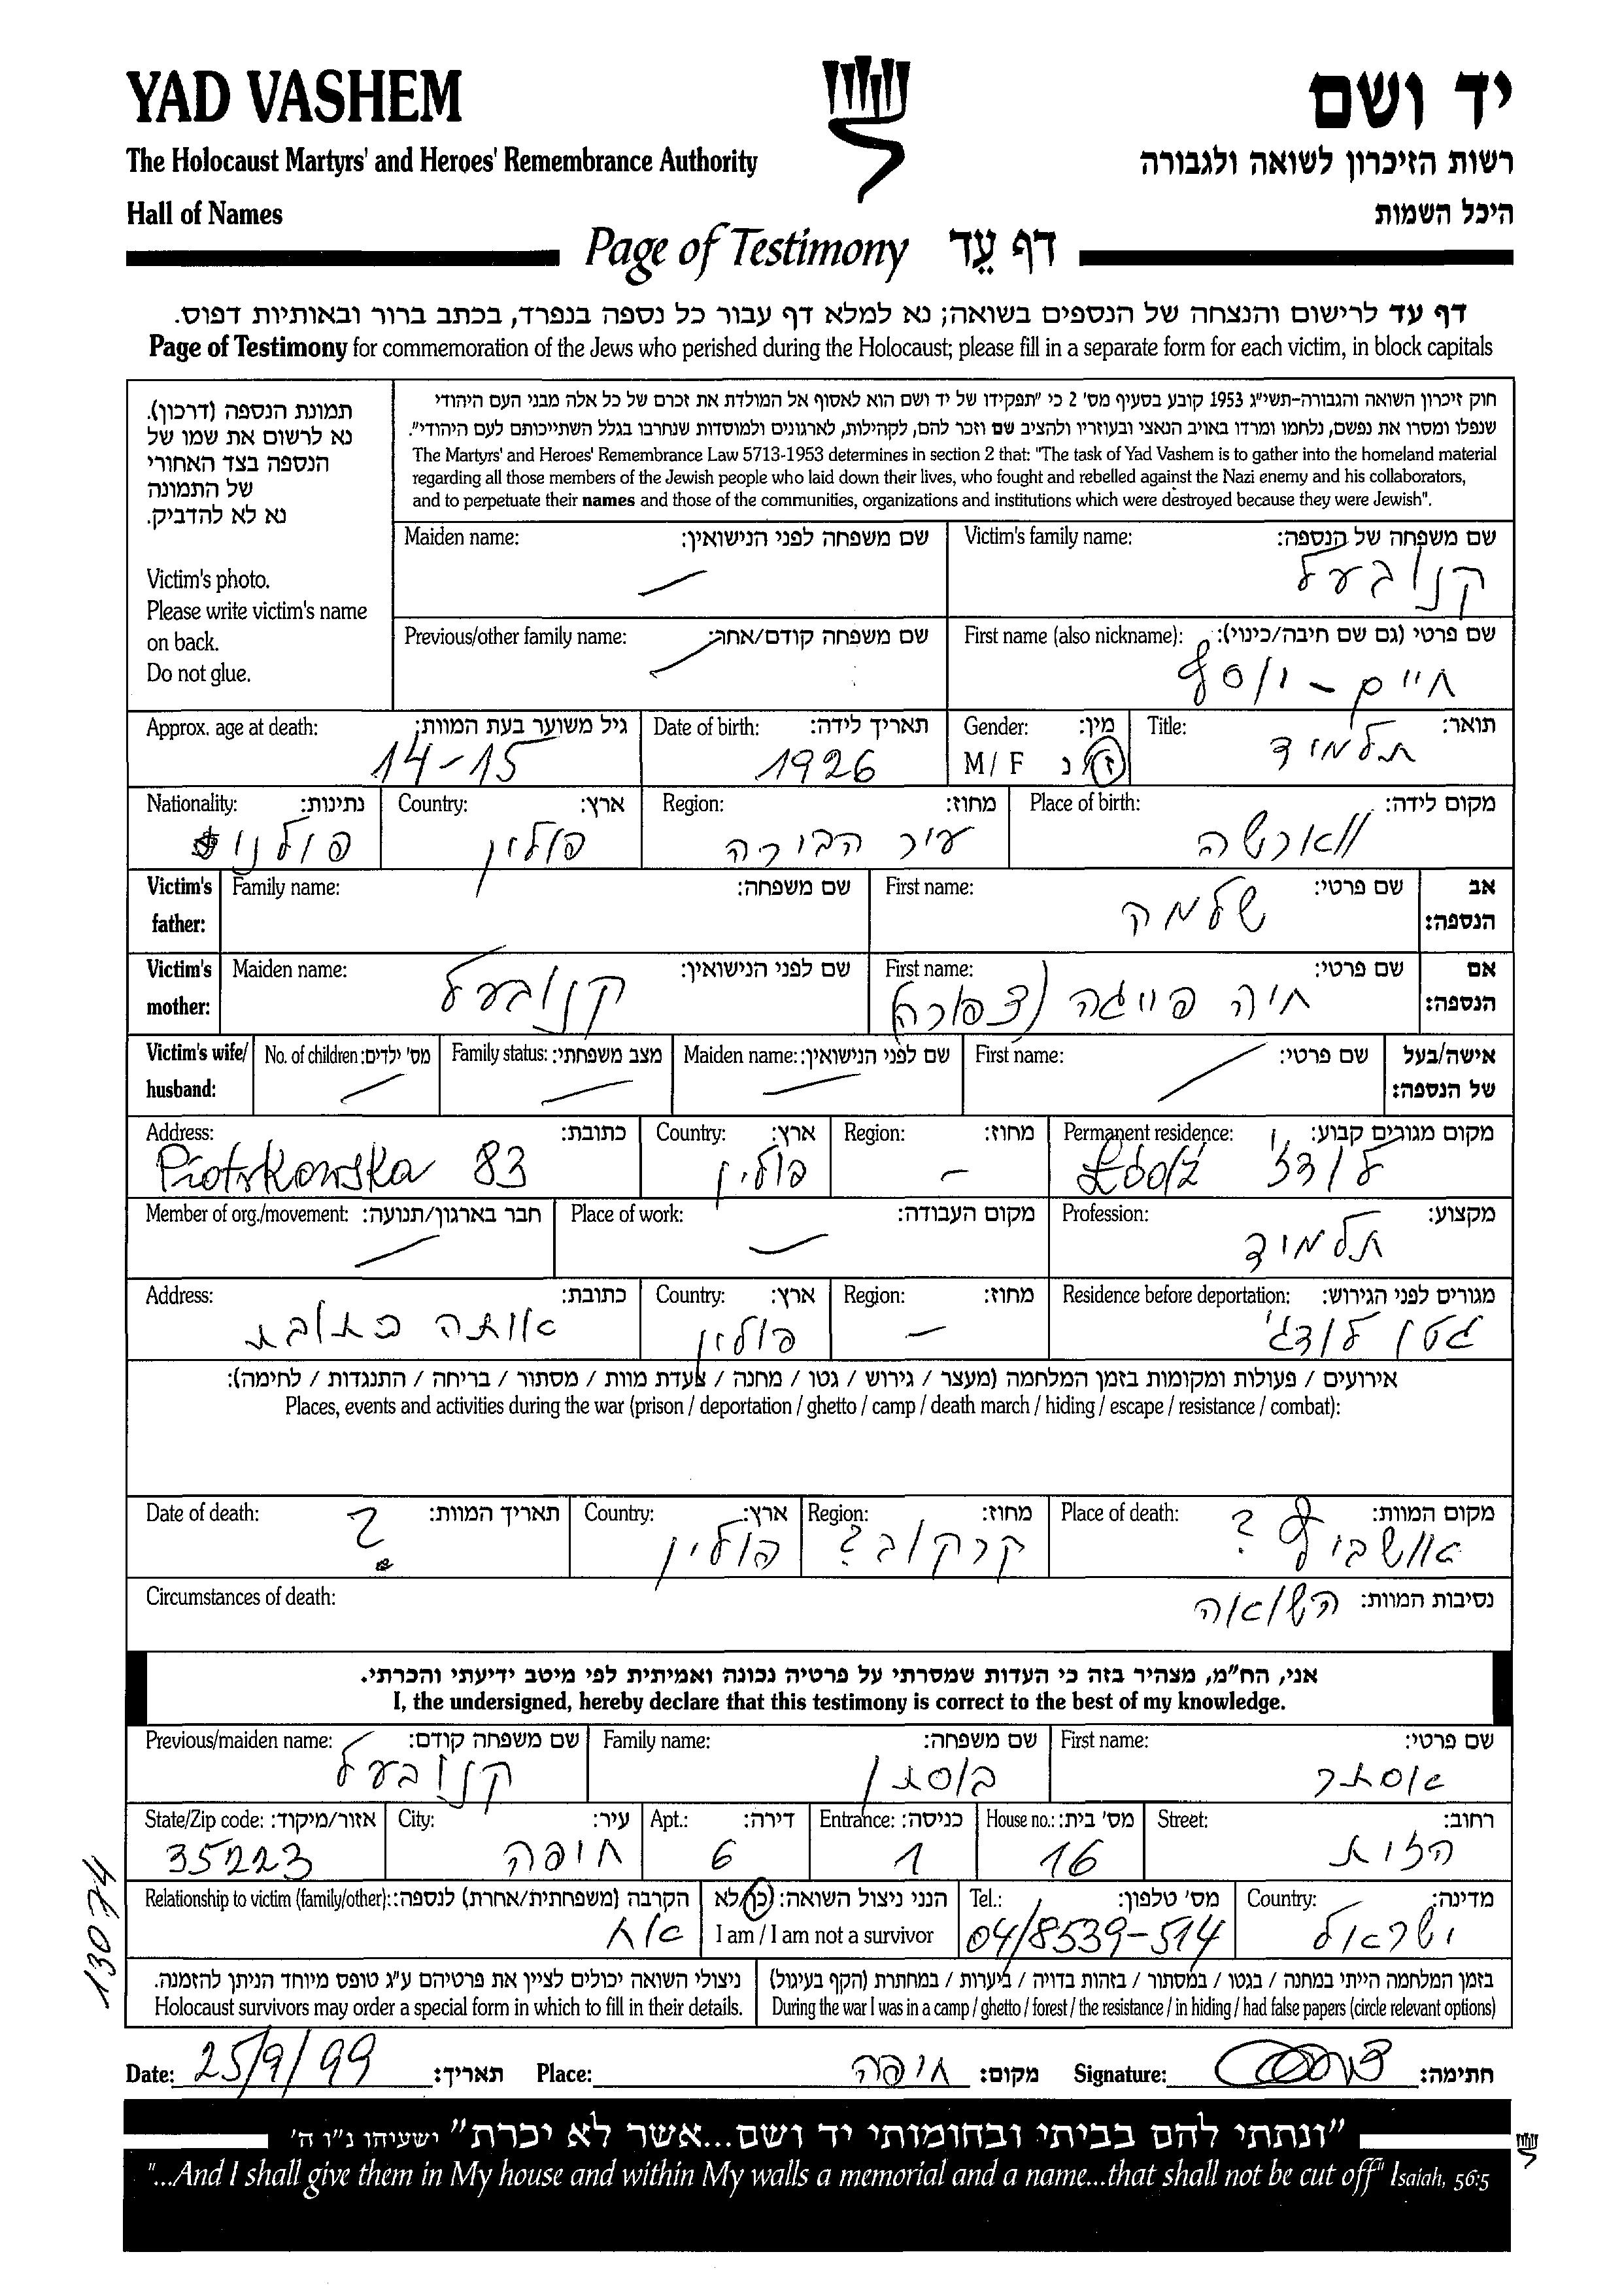 YAD VASHEM
יד ושם
The Holocaust Martyrs' and Heroes' Remembrance Authority
רשות הזיכרון לשואה ולגבורה
Hall of Names
היכל השמות
Page of Testimony דף עֵד
דף עד לרישום והנצחה של הנספים בשואה; נא למלא דף עבור כל נספה בנפרד, בכתב ברור ובאותיות דפוס.
Page of Testimony for commemoration of the Jews who perished during the Holocaust; please fill in a separate form for each victim, in block capitals
תמונת הנספה (דרכון).
נא לרשום את שמו של
הנספה בצד האחורי
של התמונה
נא לא להדביק.
Victim's photo.
Please write victim's name
on back.
Do not glue.
חוק זיכרון השואה והגבורה-תשי"ג 1953 קובע בסעיף מס' 2 כי "תפקידו של יד ושם הוא לאסוף אל המולדת את זכרם של כל אלה מבני העם היהודי
שנפלו ומסרו את נפשם, נלחמו ומרדו באויב הנאצי ובעוזריו ולהציב שם וזכר להם, לקהילות, לארגונים ולמוסדות שנחרבו בגלל השתייכותם לעם היהודי".
The Martyrs' and Heroes' Remembrance Law 5713-1953 determines in section 2 that: "The task of Yad Vashem is to gather into the homeland material
regarding all those members of the Jewish people who laid down their lives, who fought and rebelled against the Nazi enemy and his collaborators,
and to perpetuate their names and those of the communities, organizations and institutions which were destroyed because they were Jewish".
Victim's family name: שם משפחה של הנספה:
קנובעל
Maiden name: שם משפחה לפני הנישואין:
First name (also nickname): שם פרטי (גם שם חיבה/כינוי):
חיים - יוסף
Previous/other family name: שם משפחה קודם/אחר:
Title: תואר:
תלמיד
Gender: מין:
M / F ז / נ
Date of birth: תאריך לידה:
1926
Approx. age at death: גיל משוער בעת המוות:
14-15
Place of birth: מקום לידה:
ווארשה
Region: מחוז:
עיר הבירה
Country: ארץ:
פולין
Nationality: נתינות:
פולני
Victim's father: אב הנספה:
First name: שם פרטי:
שלמה
Family name: שם משפחה:
Victim's mother: אם הנספה:
First name: שם פרטי:
חיה פייגה (צפורה)
Maiden name: שם לפני הנישואין:
קנובעל
Victim's wife/ husband: אישה/בעל של הנספה:
First name: שם פרטי:
Maiden name: שם לפני הנישואין:
Family status: מצב משפחתי:
No. of children: מס' ילדים:
Permanent residence: מקום מגורים קבוע:
לודז'
Region: מחוז:
-
Country: ארץ:
פולין
Address: כתובת:
Piotrkowska 83
Profession: מקצוע:
תלמיד
Place of work: מקום העבודה:
Member of org./movement: חבר בארגון/תנועה:
Residence before deportation: מגורים לפני הגירוש:
גטו לודג'
Region: מחוז:
-
Country: ארץ:
פולין
Address: כתובת:
אותה כתובת
אירועים / פעולות ומקומות בזמן המלחמה (מעצר / גירוש / גטו / מחנה / צעדת מוות / מסתור / בריחה / התנגדות / לחימה):
Places, events and activities during the war (prison / deportation / ghetto / camp / death march / hiding / escape / resistance / combat):
Place of death: מקום המוות:
אושביץ ?
Region: מחוז:
קרקוב ?
Country: ארץ:
פולין
Date of death: תאריך המוות:
?
Circumstances of death: נסיבות המוות:
השואה
אני, הח"מ, מצהיר בזה כי העדות שמסרתי על פרטיה נכונה ואמיתית לפי מיטב ידיעתי והכרתי.
I, the undersigned, hereby declare that this testimony is correct to the best of my knowledge.
First name: שם פרטי:
אסתר
Family name: שם משפחה:
בוסתן
Previous/maiden name: שם משפחה קודם:
קנובעל
Street: רחוב:
הזית
House no.: מס' בית:
16
Entrance: כניסה:
1
Apt.: דירה:
6
City: עיר:
חיפה
State/Zip code: אזור/מיקוד:
35223
Country: מדינה:
ישראל
Tel.: מס' טלפון:
04/8539-514
הנני ניצול השואה: כן/לא
I am / I am not a survivor
Relationship to victim (family/other): הקרבה (משפחתית/אחרת) לנספה:
אח
בזמן המלחמה הייתי במחנה / בגטו / במסתור / בזהות בדויה / ביערות / במחתרת (הקף בעיגול)
During the war I was in a camp / ghetto / forest / the resistance / in hiding / had false papers (circle relevant options)
ניצולי השואה יכולים לציין את פרטיהם ע"ג טופס מיוחד הניתן להזמנה.
Holocaust survivors may order a special form in which to fill in their details.
13074
Date: 25/9/99 תאריך: Place: חיפה מקום: Signature: חתימה:
"ונתתי להם בביתי ובחומותי יד ושם...אשר לא יכרת" ישעיהו נ"ו ה'
"...And I shall give them in My house and within My walls a memorial and a name...that shall not be cut off" Isaiah, 56:5